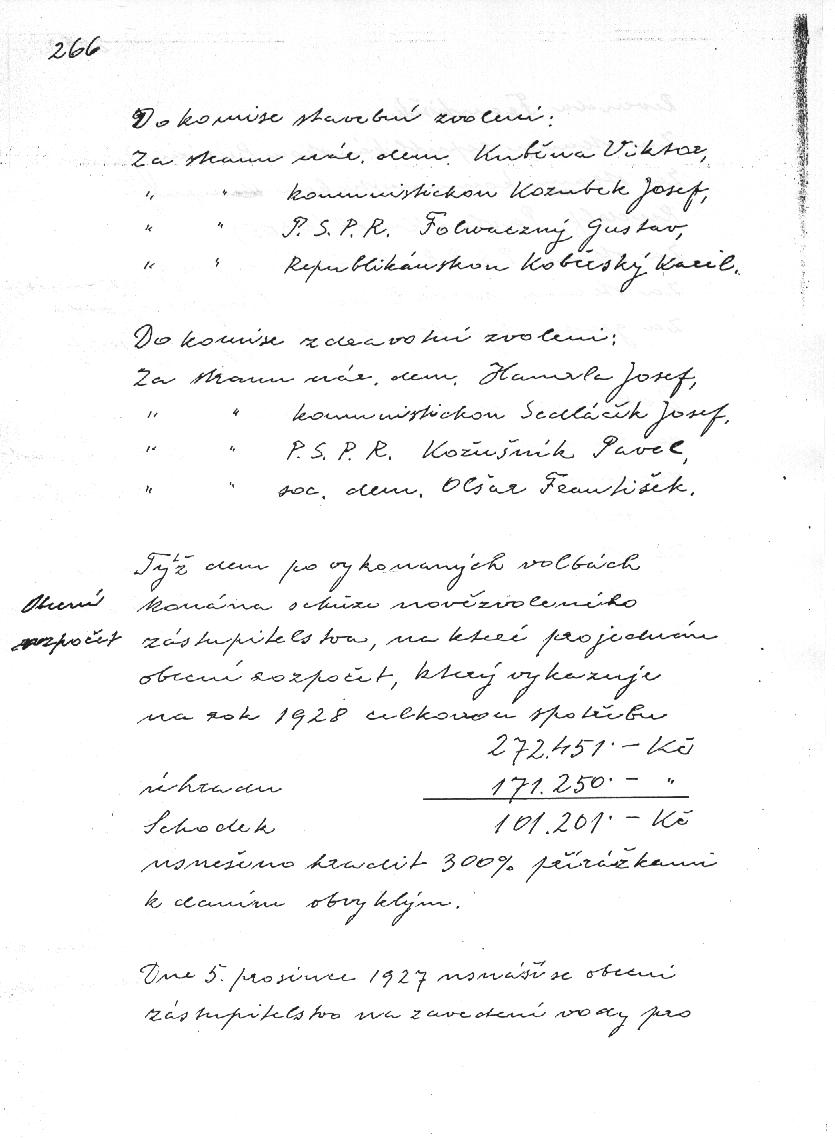 266
Do komise stavební zvoleni:
Za stranu nár. dem. Kuběna Viktor,
" " komunistickou Kozubek Josef,
" " P. S. P. R. Folwaczný Gustav,
" " Republikánskou Kobierský Karel.
Do komise zdravotní zvoleni:
Za stranu nár. dem. Hamrla Josef,
" " komunistickou Sedláčik Josef,
" " P. S. P. R. Kožušník Pavel,
" " soc. dem. Olšar František.
Týž dem po vykonaných volbách
Obecní konána schůze nověvoleného
rozpočet zástupitelstva, na které projednán
obecní rozpočet, který vykazuje
na rok 1928 celkovou spotřebu
272.451·– Kč
úhradu 171.250·– "
Schodek 101.201·– Kč
usnešeno hradit 300% přirážkami
k daním obvyklým.
Dne 5. prosince 1927 usnáší se obecní
zástupitelstvo na zavedení vody pro